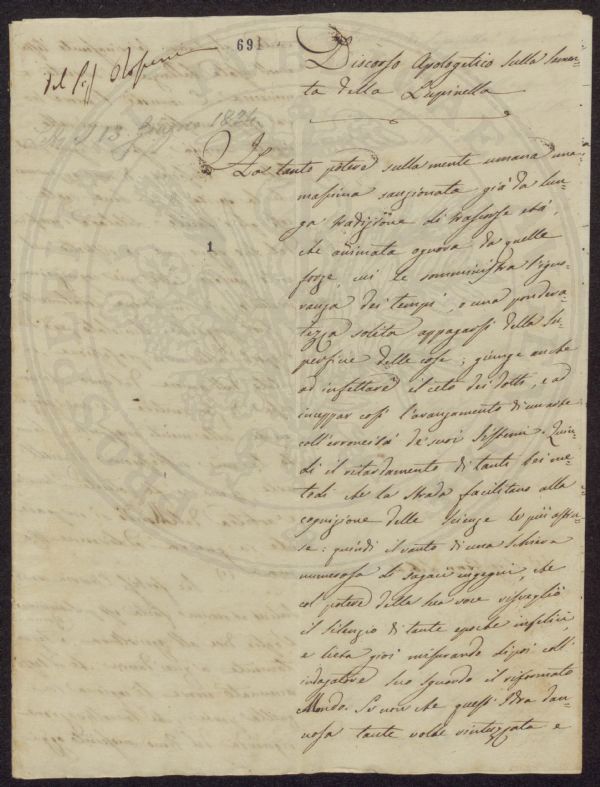 691
Discorso Apologetico sulla semen-
ta della Lupinella
Del Sig.
13 Giugno 1824
1
Ha tanto potere sulla mente umana una
massima sanzionata già da lun-
ga tradizione di trascorse età,
che animata ognora da quelle
forze, cui le somministra l'igno-
ranza dei tempi, o una pondera-
tezza solita appagarsi della su-
perficie delle cose; giunge anche
ad infettare il ceto dei dotti, e ad
inceppar così l'avanzamento di un'arte
coll'erroneità de' suoi sistemi. Quin-
di il ritardamento di tanti bei me-
todi che la strada facilitano alla
cognizione delle Scienze le più astru-
se: quindi il vanto di una schiera
numerosa di sagaci ingegni, che
col potere della sua voce risvegliò
il silenzio di tante epoche infelici
e lieta gioì misurando dipoi coll'
indagatore suo sguardo il riformato
Mondo. Se non che quest'Idra dan-
nosa tante volte e